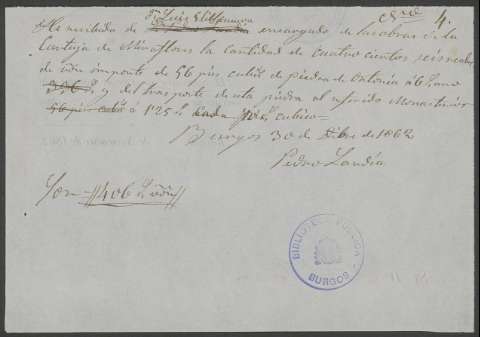 4.
Dn Luis Villanueva
He recibido de encargado de las obras de la
Cartuja de Miraflores la cantidad de cuatro cientos seis reales
de vón importe de 56 pies cubs de piedra de Ontoria á 6 rs uno
336 y del trasporte de esta piedra al referido Monasterio
56 pies cubs á 1'25 cada pie cubico=
Burgos 30 de Dibre de 1862
Pedro Landia
Son-//406 rs vón//
BIBLIOTECA PUBLICA
BURGOS